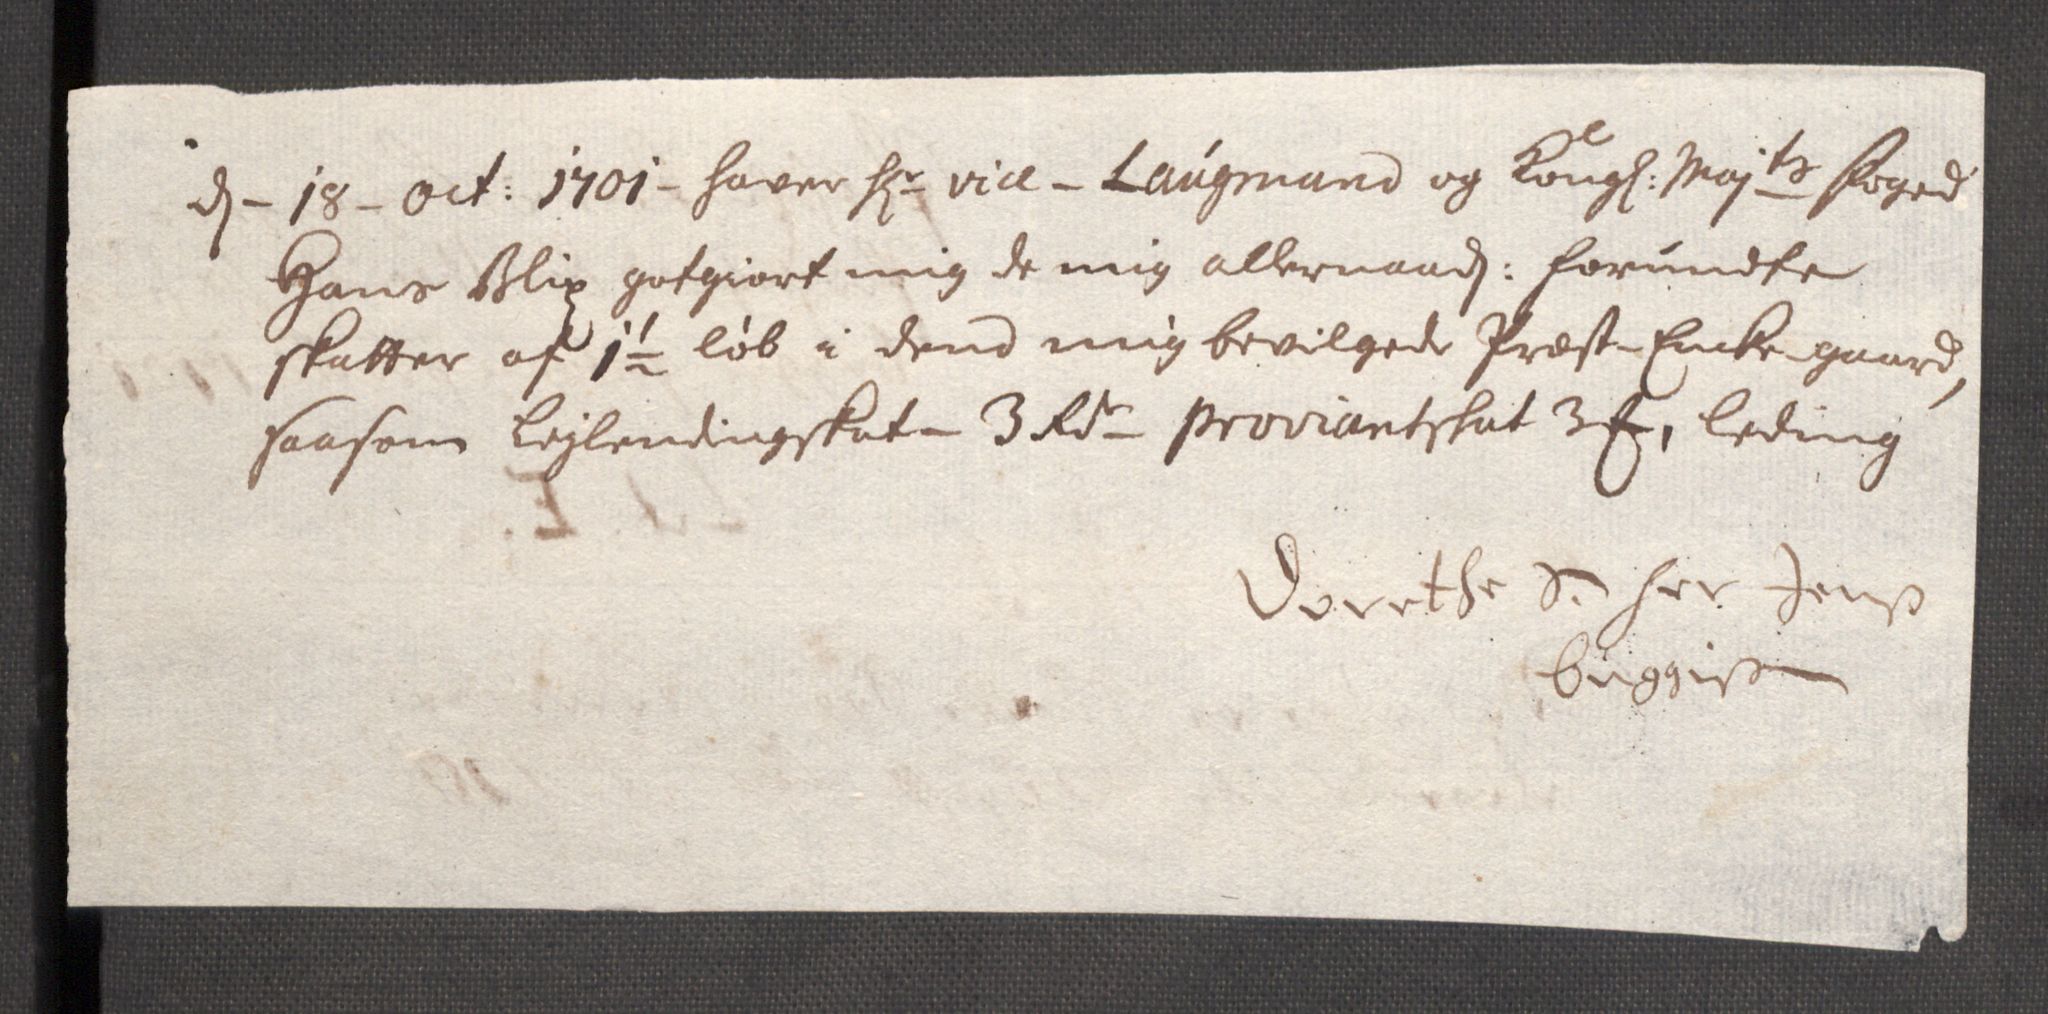 d– 18– Oct: 1701– haver hr– vice– Laugmand og Kongel: Majts foged
Hans Blix gotgiort mig de mig allernaad: forundte
skatter af 1½ løb i dend mig bevilgede Præst–Encke–gaard,
saasom Lejlendingskat– 3 Rdr– proviantskat 3 , leding
Dorethe Sr her Jenß
buggiß